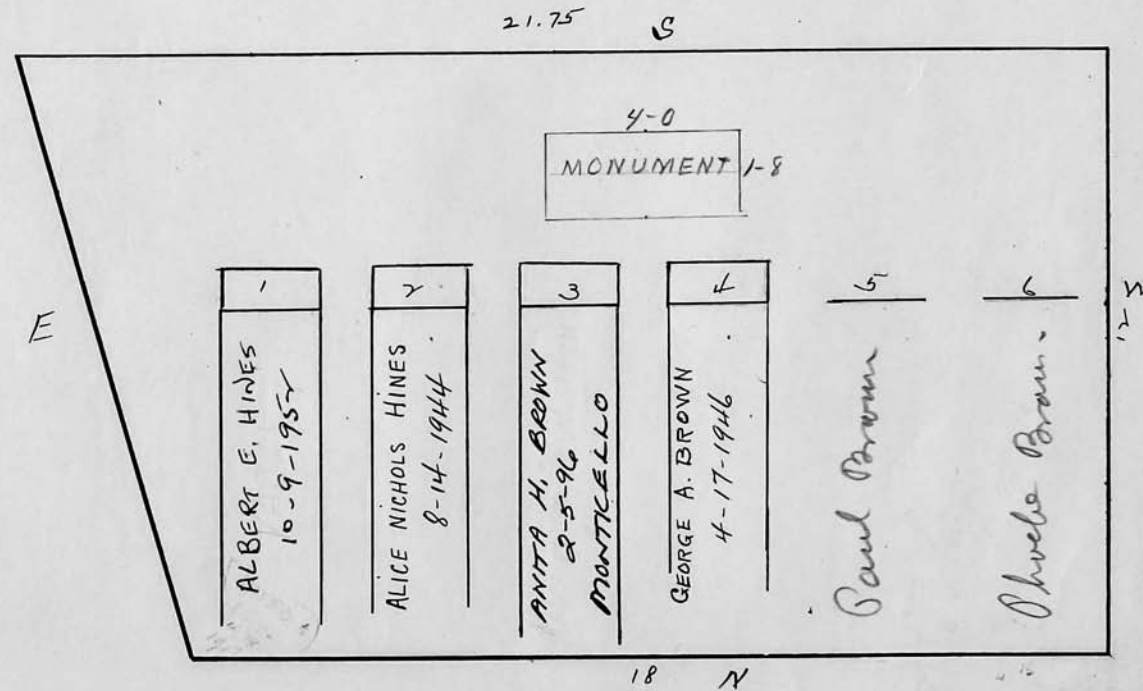 21.75 S
4-0
MONUMENT 1-8
E
1
ALBERT E. HINES
10-9-1952
2
ALICE NICHOLS HINES
8-14-1944.
3
ANITA H. BROWN
2-5-96
MONTICELLO
4
GEORGE A. BROWN
4-17-1946.
5
Paul Brown
6
Phoebe Brown.
18 N